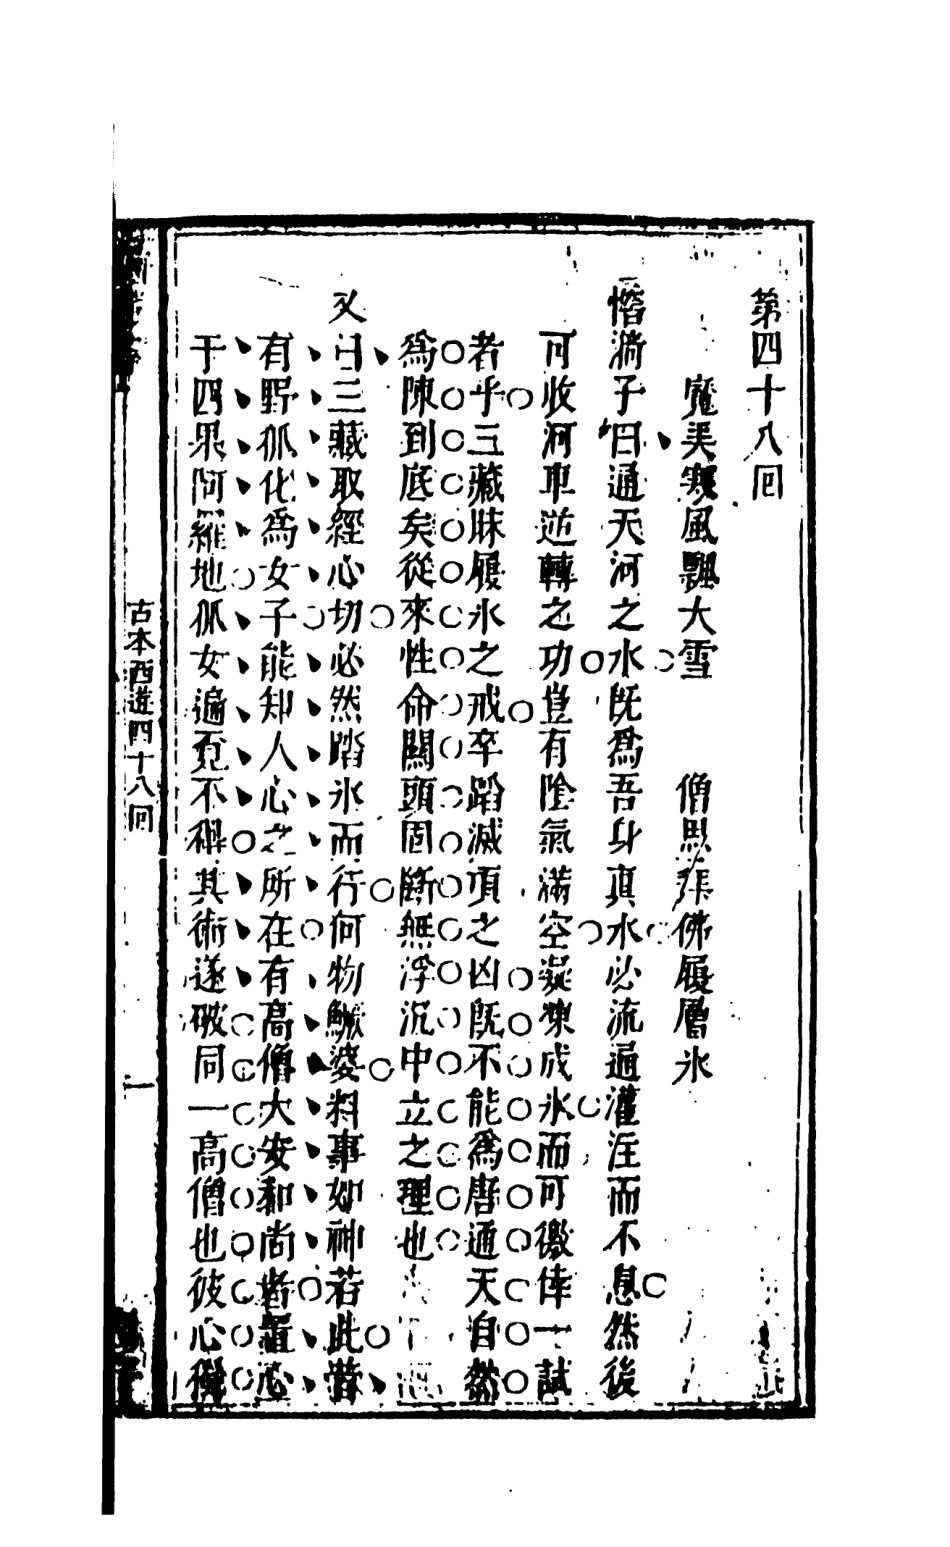 第四十八回
魔弄寒風飄大雪　僧思拜佛履層氷
憺漪子曰通天河之水既爲吾身真水必流通灌注而不息然後
可收河車逆轉之功豈有陰氣滿空凝凍成氷而可徼倖一試
者乎三藏昧履氷之戒卒蹈滅頂之凶既不能爲唐通天自然
爲陳到底矣從來性命關頭固斷無浮沉中立之理也
又曰三藏取經心切必然踏氷而行何物鱖婆料事如神若此昔
有野狐化爲女子能知人心之所在有高僧大安和尚者置心
于四果阿羅地狐女遍覓不得其術遂破同一高僧也彼心
古本西遊四十八回
一